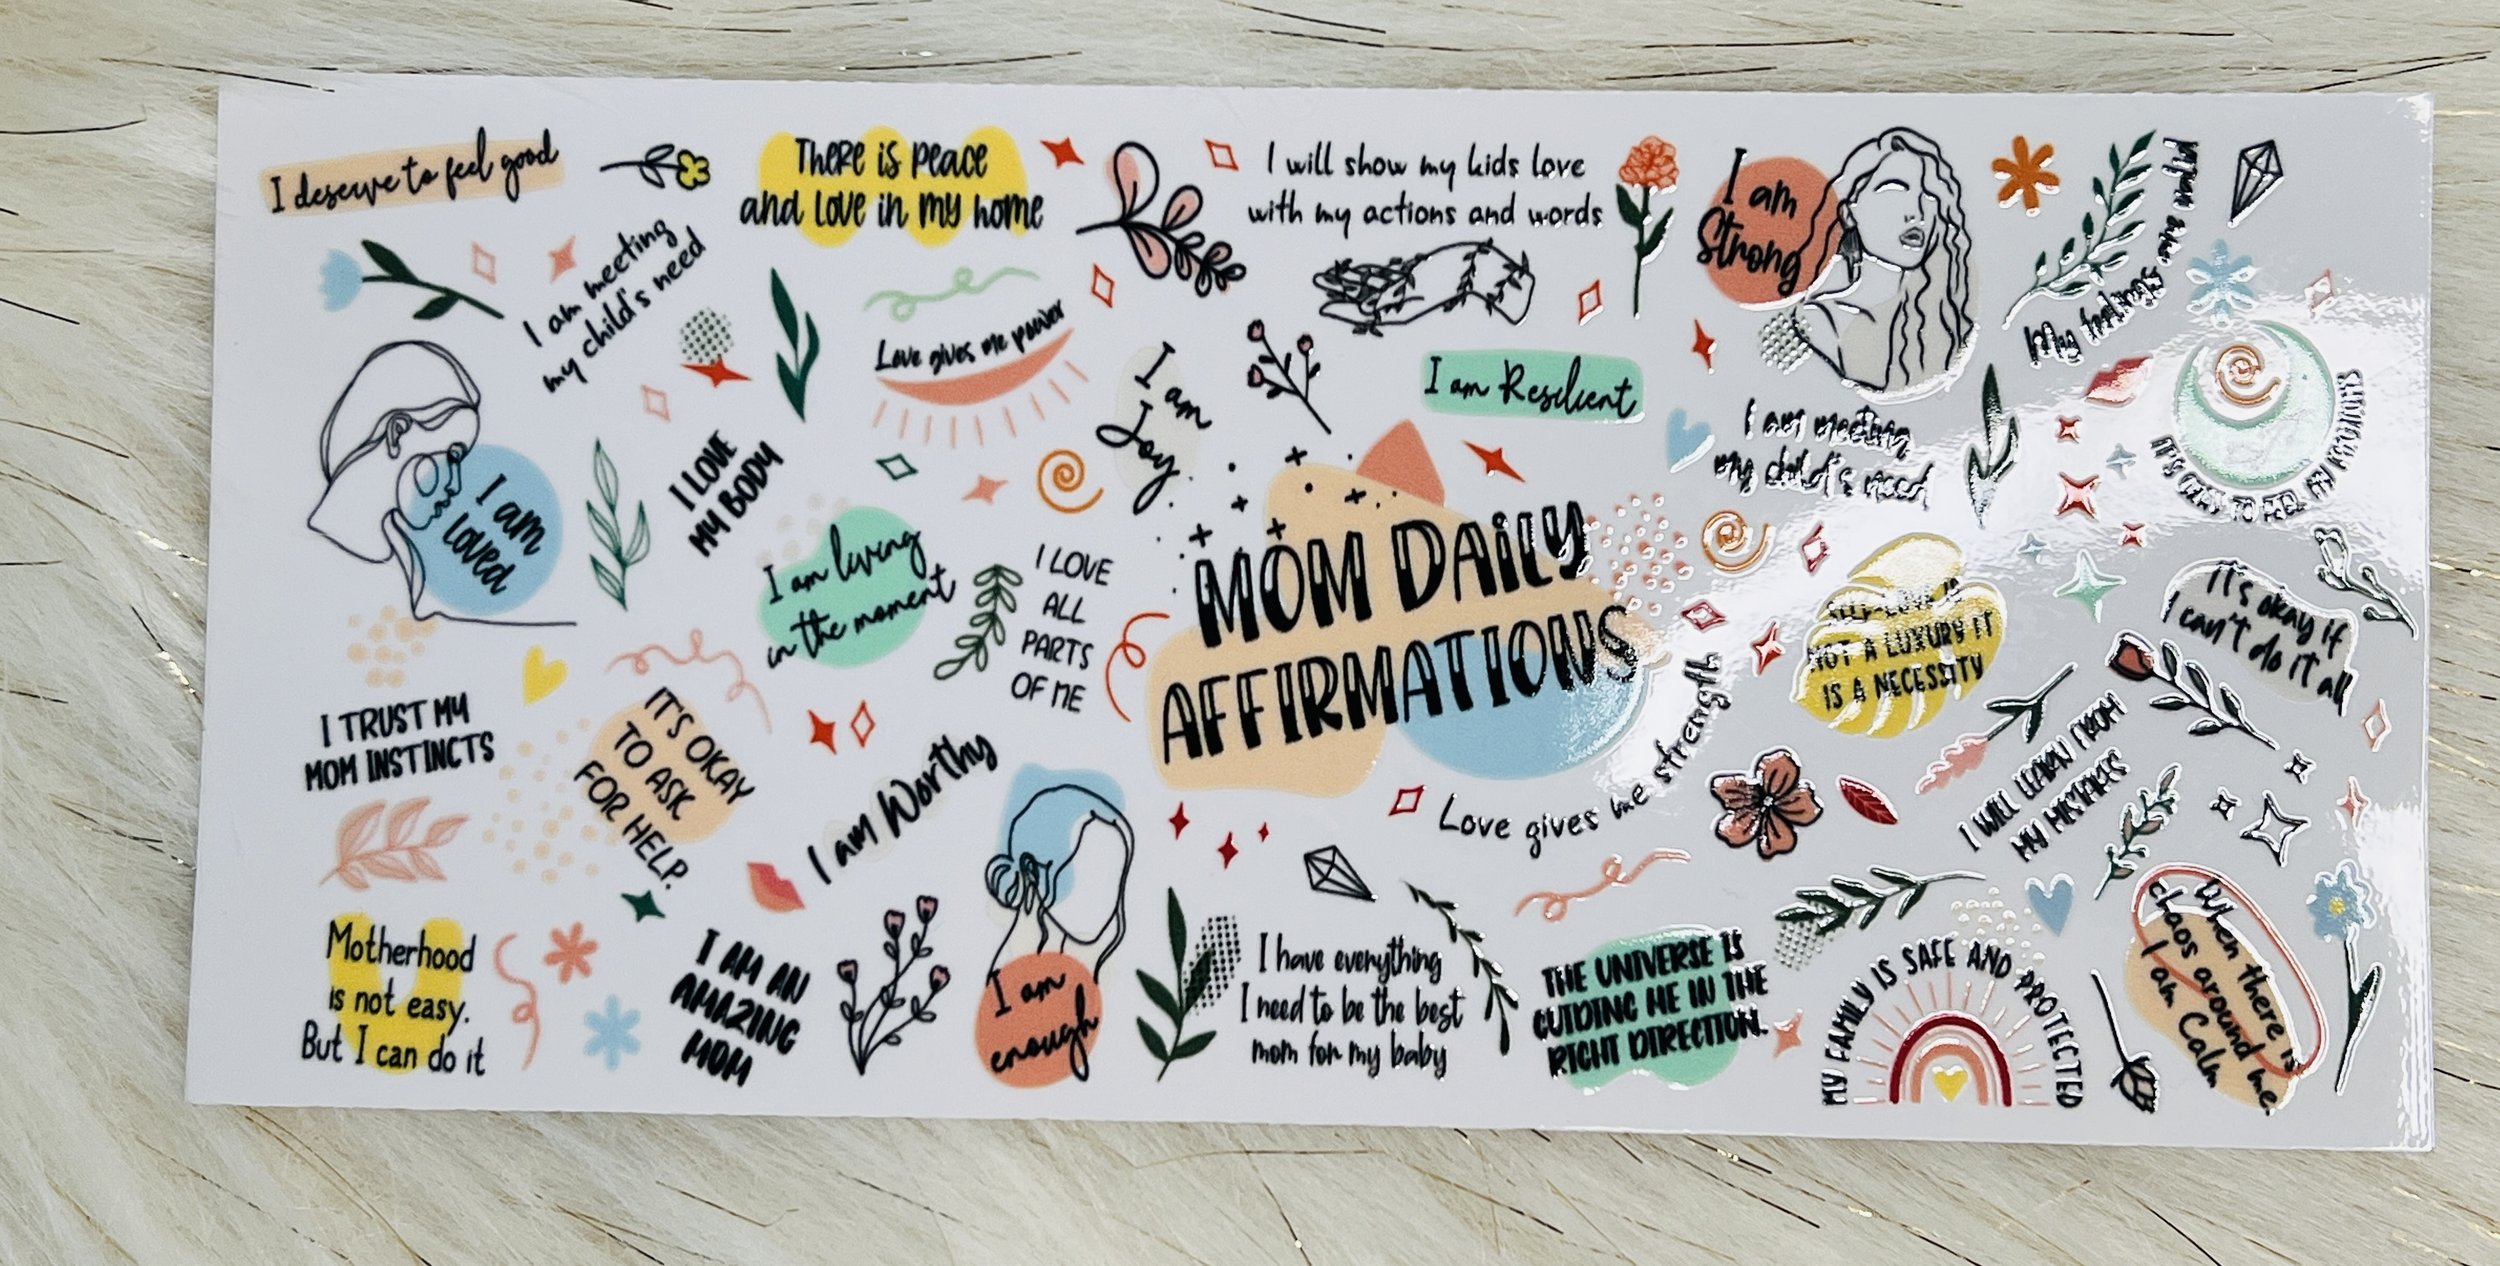 I deserve to feel good
THERE iS PEACE
AND LOVE iN MY HOME
I will show my kids love
with my actions and words
I am
Strong
My feelings are
I am meeting
my child's need
Love gives me power
I am
Joy
I am Resilient
I am meeting
my child's need
IT'S OKAY TO FEEL MY EMOTIONS
I am
loved
I LOVE
MY BODY
I am living
in the moment
I LOVE
ALL
PARTS
OF ME
MOM DAiLY
AFFIRMATIONS
SELF-LOVE IS
NOT A LUXURY IT
IS A NECESSITY
It's okay if
I can't do it all
I TRUST MY
MOM INSTINCTS
IT'S OKAY
TO ASK
FOR HELP.
I am Worthy
Love gives me strength
I WILL LEARN FROM
MY MISTAKES
Motherhood
is not easy.
But I can do it
I AM AN
AMAZING
MOM
I am
enough
I have everything
I need to be the best
mom for my baby
THE UNIVERSE IS
GUIDING ME IN THE
RIGHT DIRECTION.
MY FAMILY IS SAFE AND PROTECTED
When there is
chaos around me.
I am Calm